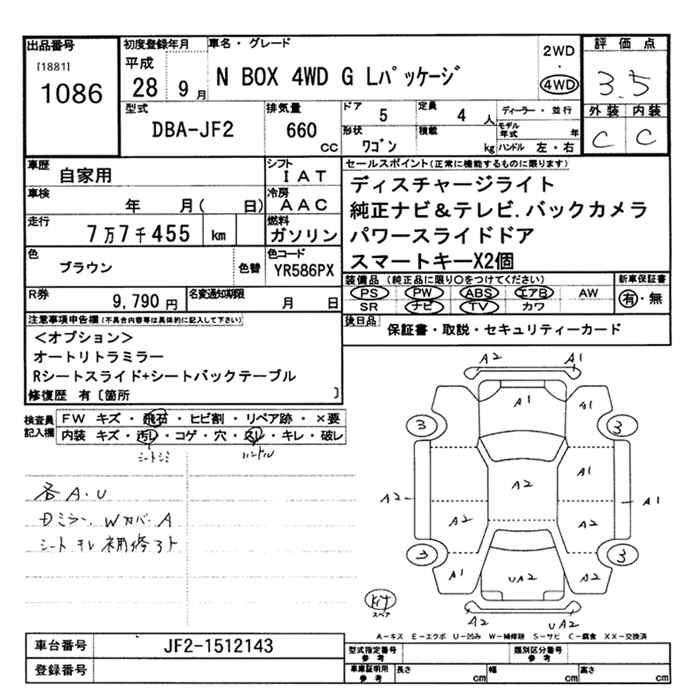 出品番号
[1881]
1086
初度登録年月
平成
28 9 月
車名・グレード
N BOX 4WD G Lパッケージ
2WD
4WD
評価点
3.5
外装 内装
C C
型式
DBA-JF2
排気量
660 cc
ドア 5
定員 4 人
形状 ワゴン
積載 kg
ディーラー・並行
モデル年式 年
ハンドル 左・右
車歴 自家用
シフト IAT
車検 年 月( 日)
冷房 AAC
走行 7万7千455 km
燃料 ガソリン
色 ブラウン
色替
色コード YR586PX
R券 9,790 円
名変通知期限 月 日
セールスポイント(正常に機能するものに限ります)
ディスチャージライト
純正ナビ&テレビ.バックカメラ
パワースライドドア
スマートキーX2個
装備品(純正品に限り○をつけてください)
PS PW ABS エアB AW
SR ナビ TV カワ
新車保証書
有・無
後日品
保証書・取説・セキュリティーカード
注意事項申告欄(不具合内容等は具体的に記入して下さい)
<オプション>
オートリトラミラー
Rシートスライド+シートバックテーブル
修復歴 有〔箇所 〕
検査員記入欄
FW キズ・飛石・ヒビ割・リペア跡・×要
内装 キズ・汚レ・コゲ・穴・スレ・キレ・破レ
ハンドル
各A.U
Dミラー.WカバーA
A2 A1
A1
3 3
A1
A2 A2 A1 A1
A2 A2
3 3
A1 UA2 A2
A2 UA2
スペア
A-キズ E-エクボ U-凹み W-補修跡 S-サビ C-腐食 XX-交換済
車台番号 JF2-1512143
登録番号
型式指定番号 参考
類別区分番号 参考
車庫証明用 参考
長さ cm 幅 cm 高さ cm